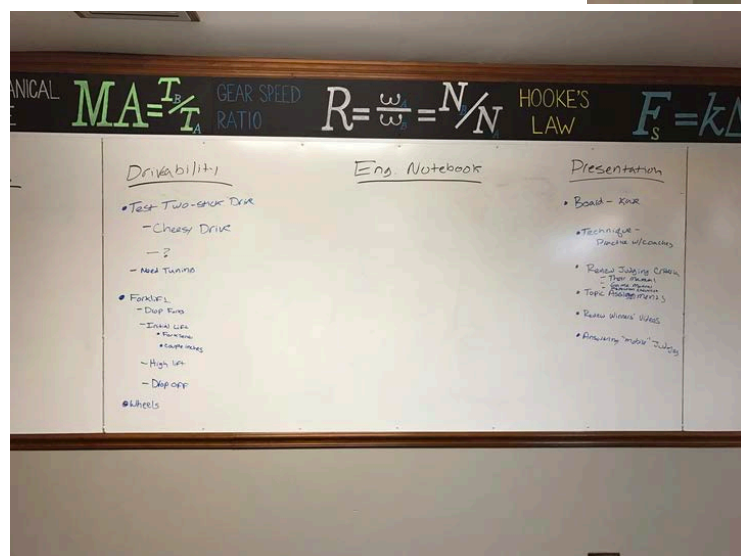 ANICAL
MA=T_B/T_A
GEAR SPEED
RATIO
R=ω_A/ω_B=N/N
HOOKE'S
LAW
F_s=kΔ
Drivability
• Test Two-stick Drive
- Cheesy Drive
- ?
- Need Tuning
• Forklift
- Drop Forks
- Initial Lift
• Couple inches
- High Lift
- Drop off
• Wheels
Eng. Notebook
Presentation
• Board -
• Technique -
Practice w/coaches
• Review Judging Criteria
- Game Manual
• Topic Assignments
• Review Winners' Videos
• Answering "mobile" Judging